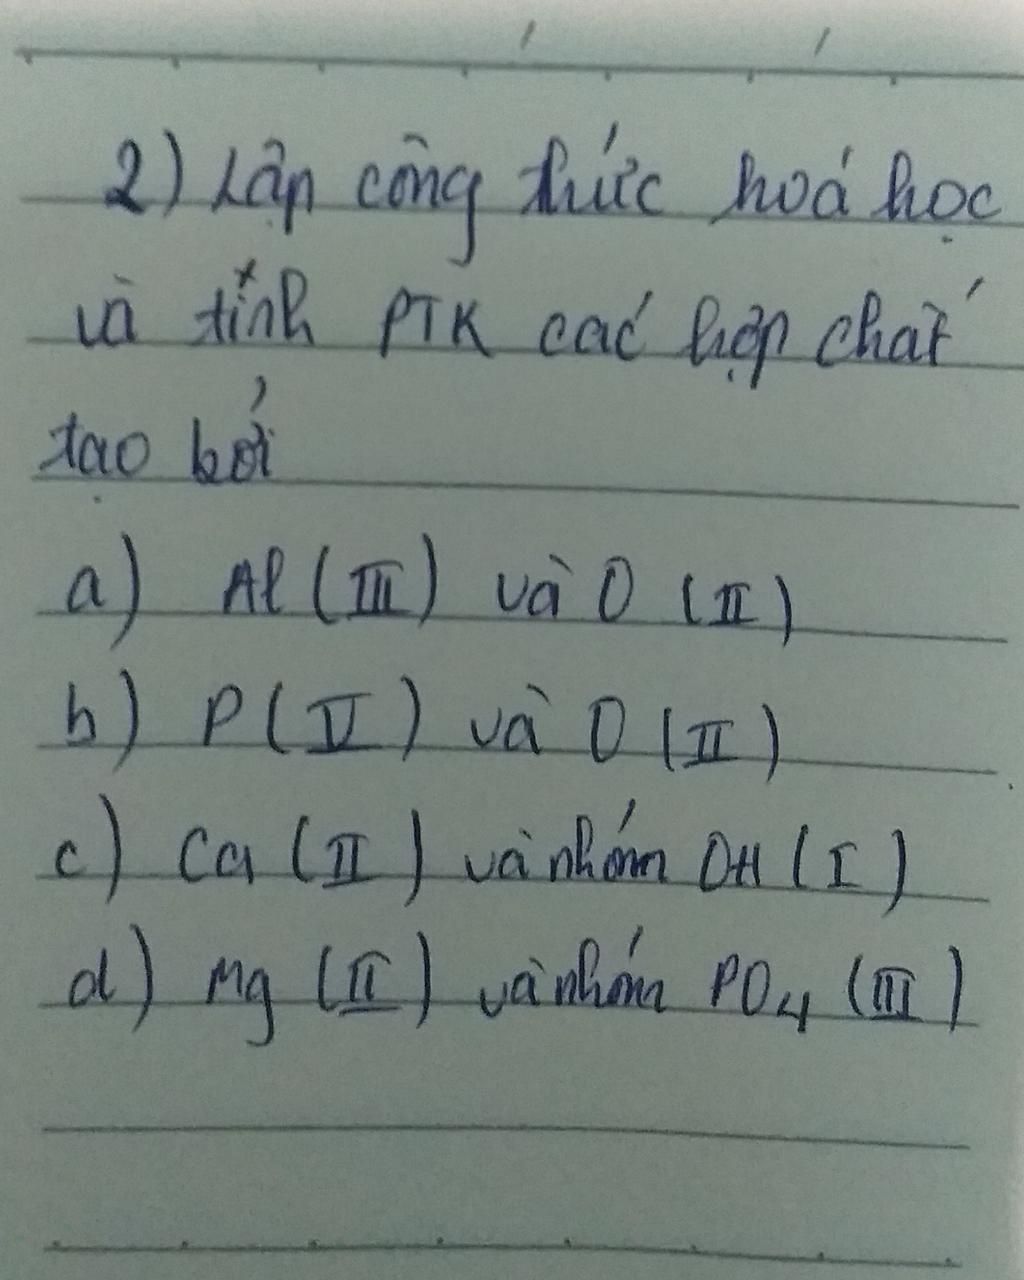 2) Lập công thức hoá học
và tính PTK các hợp chất
tạo bởi
a) Al (III) và O (II)
b) P (V) và O (II)
c) Ca (II) và nhóm OH (I)
d) Mg (II) và nhóm PO₄ (III)